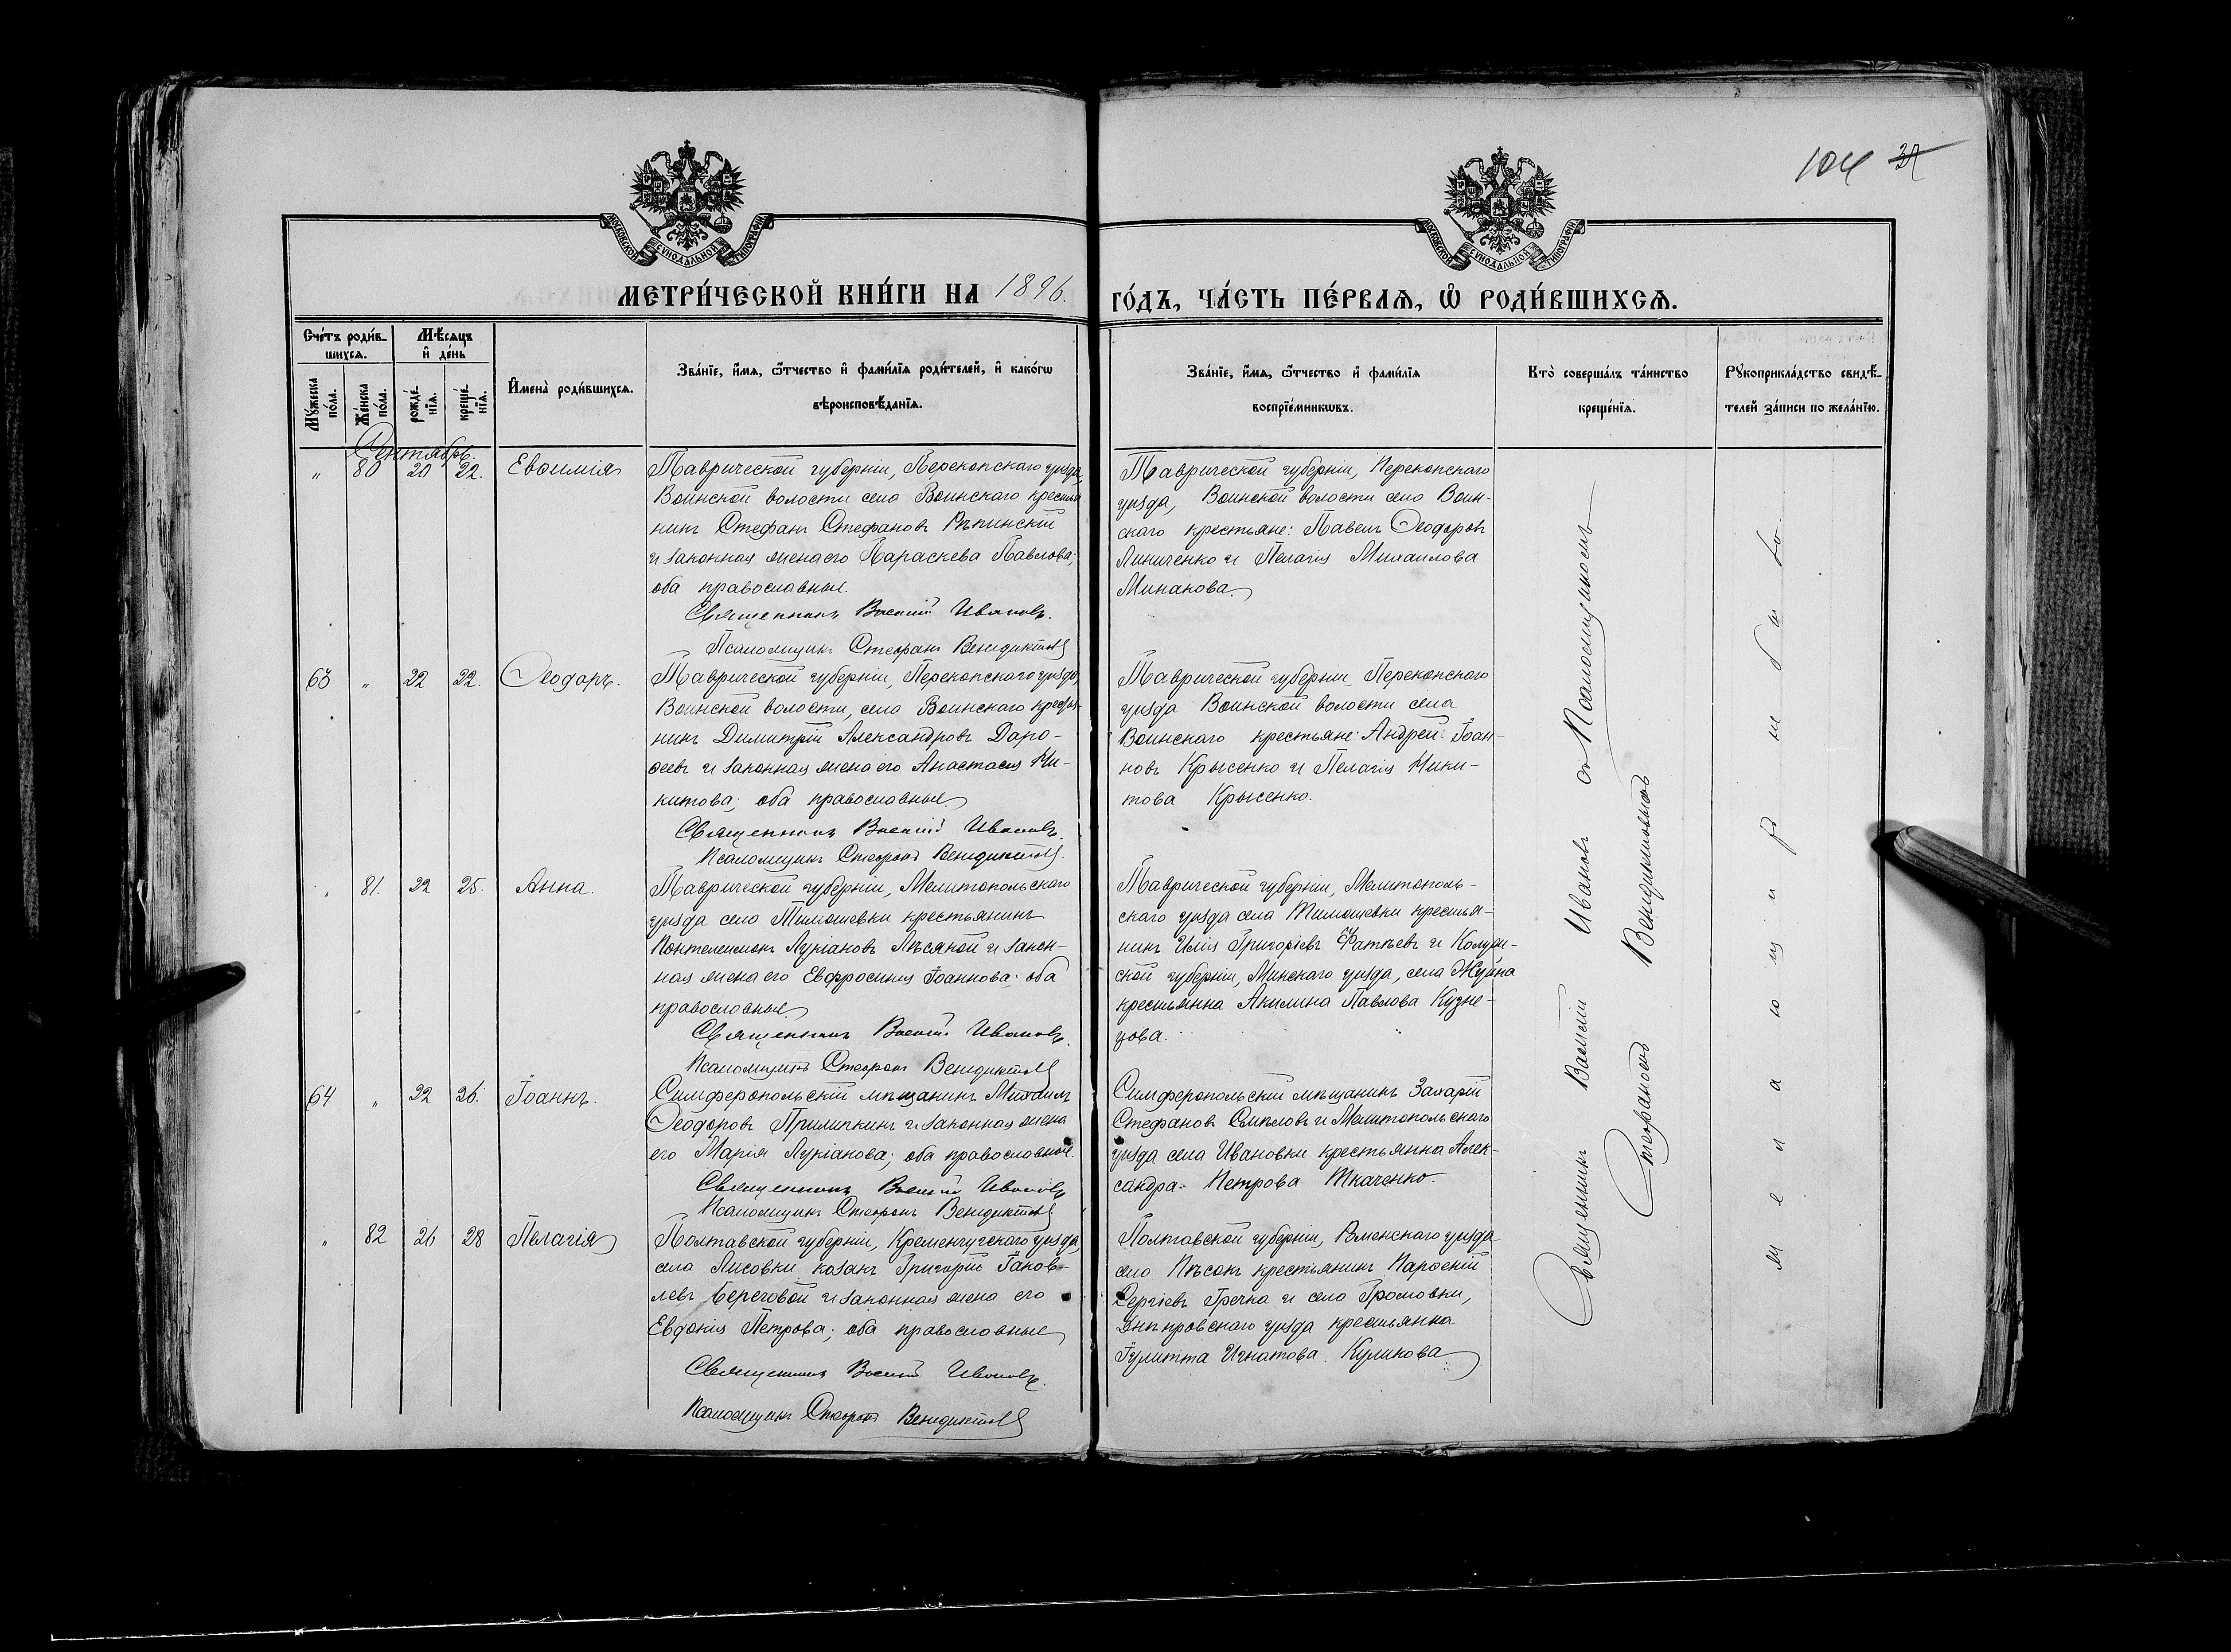 104 37
МОСКОВСКОЙ СѴНОДАЛЬНОЙ ТИПОГРАФІИ
МОСКОВСКОЙ СѴНОДАЛЬНОЙ ТИПОГРАФІИ
МЕТРИ́ЧЕСКОЙ КНИ́ГИ НА 1896
ГО́ДЪ, ЧА́СТЬ ПЕ́РВАѦ, Ѡ҆ РОДИ́ВШИХСѦ.
Сче́тъ роди́в-
шихсѧ.
Мѣ́сѧцъ
и҆ де́нь
Мꙋ́жеска
по́ла.
Же́нска
по́ла.
рожде́-
нїѧ.
креще́-
нїѧ.
И҆мена̀ роди́вшихсѧ.
Зва́нїе, и҆́мѧ, ѻ҆́тчество и҆ фами́лїѧ роди́телей, и҆ како́гѡ
вѣроисповѣ́данїѧ.
Зва́нїе, и҆́мѧ, ѻ҆́тчество и҆ фами́лїѧ
воспрїе́мникѡвъ.
Кто̀ соверша́лъ та́инство
креще́нїѧ.
Рꙋкоприкла́дство свидѣ́-
телей за́писи по жела́нїю.
Сентябрь.
" 80 20 22. Евѳимія
Таврической губерніи, Перекопскаго уѣзда,
Воинской волости села Воинскаго крестья
нинъ Стефанъ Стефановъ Рѣпинскій
и законная жена его Параскева Павлова;
оба православные.
Священникъ Василій Ивановъ.
Псаломщикъ Стефанъ Венедиктовъ
Таврической губерніи, Перекопскаго
уѣзда, Воинской волости села Воин-
скаго крестьяне: Павелъ Ѳеодоровъ
Линиченко и Пелагія Михаилова
Минакова.
63 " 22 22. Ѳеодоръ.
Таврической губерніи, Перекопскаго уѣзда,
Воинской волости, села Воинскаго крестья-
нинъ Димитрій Александровъ Доро-
ѳеевъ и законная жена его Анастасія Ни-
китова; оба православные
Священникъ Василій Ивановъ.
Псаломщикъ Стефанъ Венедиктовъ.
Таврической губерніи Перекопскаго
уѣзда Воинской волости села
Воинскаго крестьяне: Андрей Іоан-
новъ Крысенко и Пелагія Ники-
това Крысенко.
" 81. 22 25. Анна.
Таврической губерніи, Мелитопольскаго
уѣзда села Тимошевки крестьянинъ
Пантелеимонъ Лукіановъ Лѣсяной и закон-
ная жена его Евфросинія Іоаннова; оба
православные
Священникъ Василій Ивановъ.
Псаломщикъ Стефанъ Венедиктовъ
Таврической губерніи, Мелитополь-
скаго уѣзда села Тимошевки крестья-
нинъ Илія Григоріевъ Фатѣевъ и Калуж-
ской губерніи, Минскаго уѣзда, села
крестьянка Акилина Павлова Кузне-
цова.
64 " 22 26. Іоаннъ.
Симферопольскій мѣщанинъ Михаилъ
Ѳеодоровъ Прилипкинъ и законная жена
его Марія Лукіанова; оба православные.
Священникъ Василій Ивановъ
Псаломщикъ Стефанъ Венедиктовъ
Симферопольскій мѣщанинъ Захарій
Стефановъ и Мелитопольскаго
уѣзда села Ивановки крестьянка Алек-
сандра Петрова Ткаченко.
" 82 26 28 Пелагія
Полтавской губерніи, Кременчугскаго уѣзда,
села Лисовки козакъ Григорій Іаков-
левъ Береговой и законная жена его
Евдокія Петрова; оба православные
Священникъ Василій Ивановъ.
Псаломщикъ Стефанъ Венедиктовъ
Полтавской губерніи, Роменскаго уѣзда
села Пѣсокъ крестьянинъ Парѳеній
Сергіевъ Гречка и села Громовки,
Днѣпровскаго уѣзда крестьянка
Іулитта Игнатова Куликова
Священникъ Василій Ивановъ съ Псаломщикомъ
Стефаномъ Венедиктовымъ
желающихъ не было.